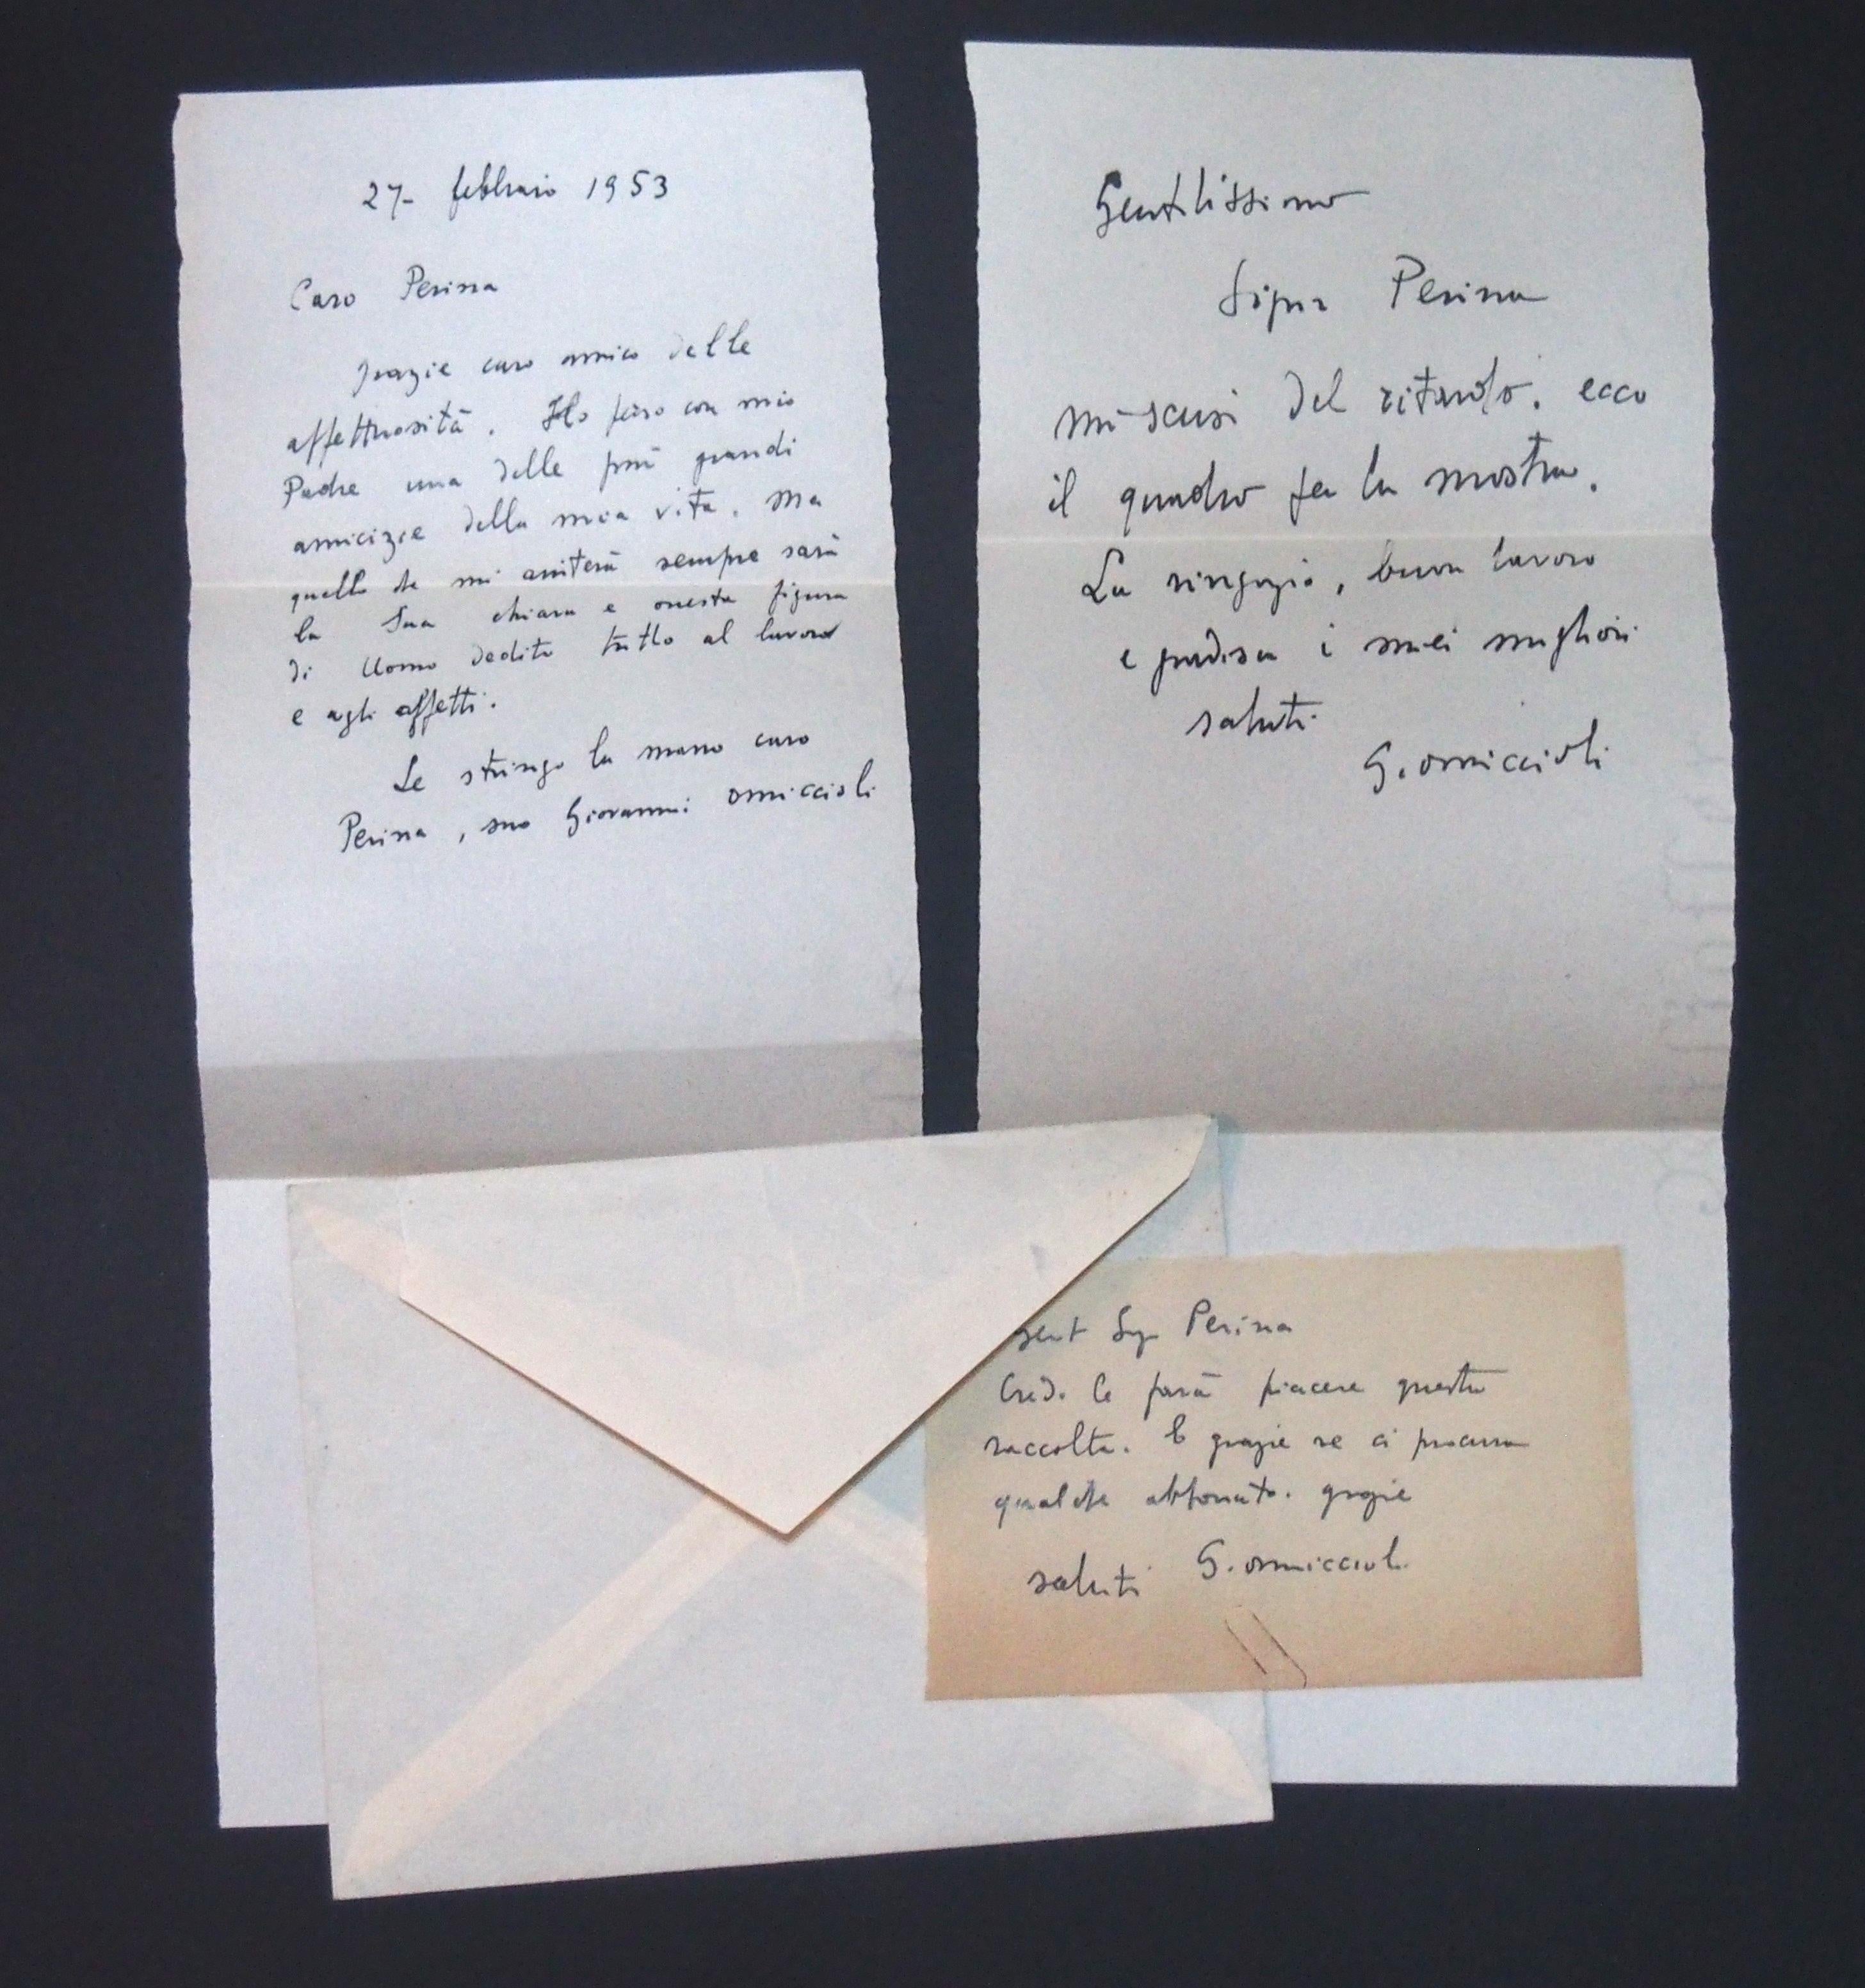 27- febbraio 1953
Caro Perina
grazie caro amico delle
affettuosità. Ho perso con mio
Padre una delle più grandi
amicizie della mia vita. Ma
quello che mi aiuterà sempre sarà
la Sua chiara e onesta figura
di Uomo dedito tutto al lavoro
e agli affetti.
Le stringo la mano caro
Perina, suo Giovanni Omiccioli
Gentilissimo
Signor Perina
mi scusi del ritardo. ecco
il quadro per la mostra.
La ringrazio, buon lavoro
e gradisca i miei migliori
saluti
G. Omiccioli
gent Sig Perina
Credo le farà piacere questa
raccolta. E grazie se ci procura
qualche abbonato. grazie
saluti G. Omiccioli